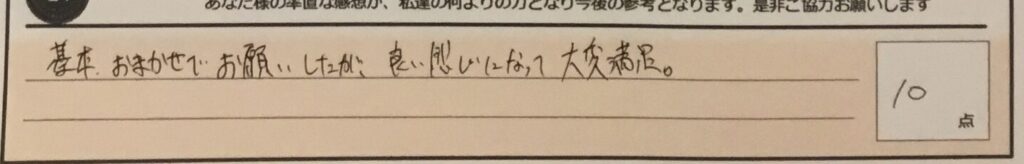 あなた様の率直な感想が、私達の何よりの力となり今後の参考となります。是非ご協力お願いします
基本、おまかせで お願いしたが、良い感じになって 大変満足。
10
点